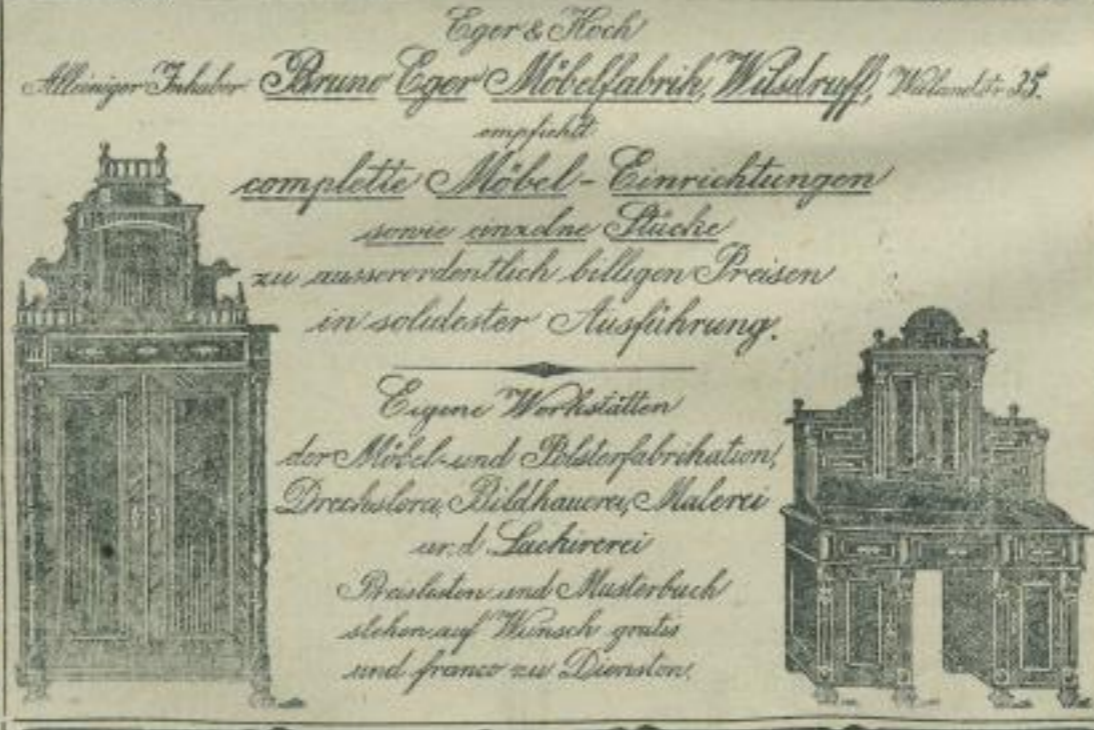 Eger & Koch
Alleiniger Inhaber Bruno Eger Möbelfabrik, Wilsdruff, 35.
empfiehlt
complette Möbel-Einrichtungen
sowie einzelne Stücke
zu ausserordentlich billigen Preisen
in solidester Ausführung.
Eigene Werkstätten
der Möbel- und Polsterfabrikation,
Drechslerei, Bildhauerei, Malerei
und Lackirerei
Preislisten und Musterbuch
stehen auf Wunsch gratis
und franco zu Diensten.